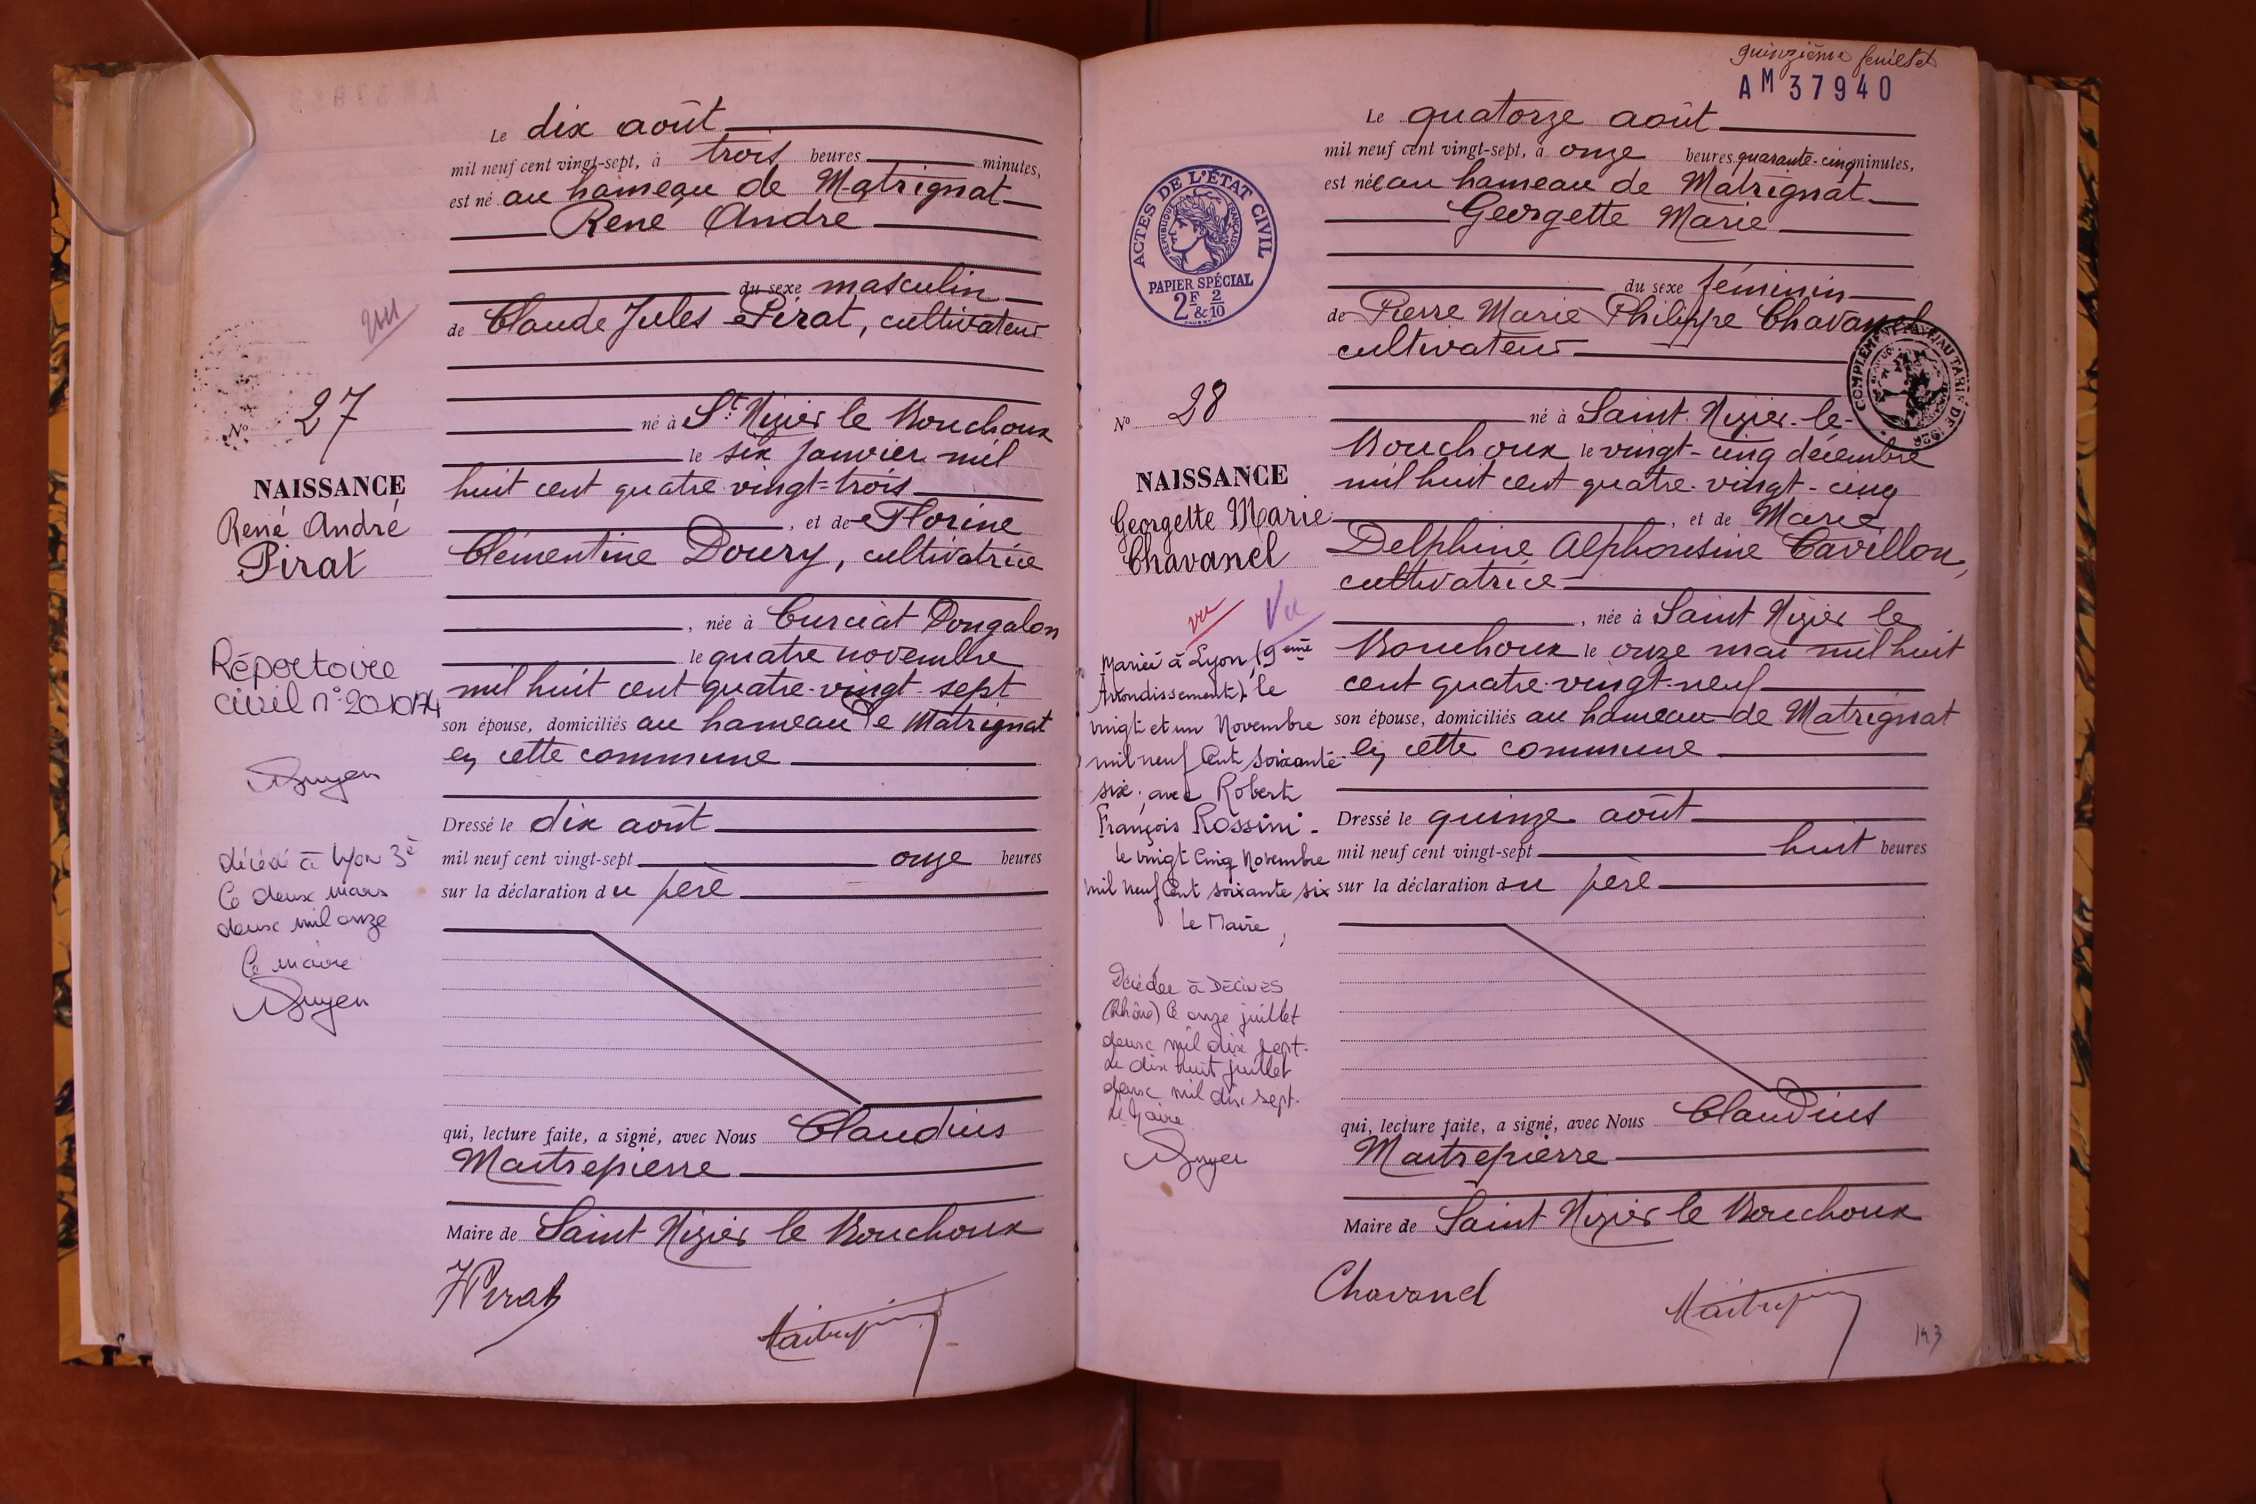 Le dix août
mil neuf cent vingt-sept, à trois heures minutes,
est né au hameau de Matrignat
René André
du sexe masculin
de Claude Jules Pirat, cultivateur
né à St Nizier le Bouchoux
le six janvier mil
huit cent quatre-vingt-trois
, et de Florine
Clémentine Doury, cultivatrice
, née à Curciat Dongalon
le quatre novembre
mil huit cent quatre-vingt-sept
son épouse, domiciliés au hameau de Matrignat
en cette commune
Dressé le dix août
mil neuf cent vingt-sept onze heures
sur la déclaration du père
qui, lecture faite, a signé, avec Nous Claudius
Maitrepierre
Maire de Saint Nizier le Bouchoux
JPirat
Maitrepierre
vu
No 27
NAISSANCE
René André
Pirat
Répertoire
civil n° 2010174
décédé à Lyon 3è
le deux mars
deux mil onze
le maire
quinzième feuillet
AM 37940
Le quatorze août
mil neuf cent vingt-sept, à onze heures quarante-cinq minutes,
est née au hameau de Matrignat
Georgette Marie
du sexe féminin
de Pierre Marie Philippe Chavanel
cultivateur
né à Saint-Nizier-le-
Bouchoux le vingt-cinq décembre
mil huit cent quatre-vingt-cinq
, et de Marie
Delphine Alphonsine Cavillon,
cultivatrice
, née à Saint Nizier le
Bouchoux le onze mai mil huit
cent quatre-vingt-neuf
son épouse, domiciliés au hameau de Matrignat
en cette commune
Dressé le quinze août
mil neuf cent vingt-sept huit heures
sur la déclaration du père
qui, lecture faite, a signé, avec Nous Claudius
Maitrepierre
Maire de Saint Nizier le Bouchoux
Chavanel
Maitrepierre
143
ACTES DE L'ÉTAT CIVIL
RÉPUBLIQUE FRANÇAISE
PAPIER SPÉCIAL
2F & 2/10
No 28
NAISSANCE
Georgette Marie
Chavanel
vu Vu
Mariée à Lyon (9ème
Arrondissement) le
vingt et un Novembre
mil neuf cent soixante
six, avec Robert
François Rossini -
le vingt cinq Novembre
mil neuf cent soixante six
Le Maire,
Décédée à DECINES
(Rhône) le onze juillet
deux mil dix sept.
Le dix huit juillet
deux mil dix sept.
Le Maire